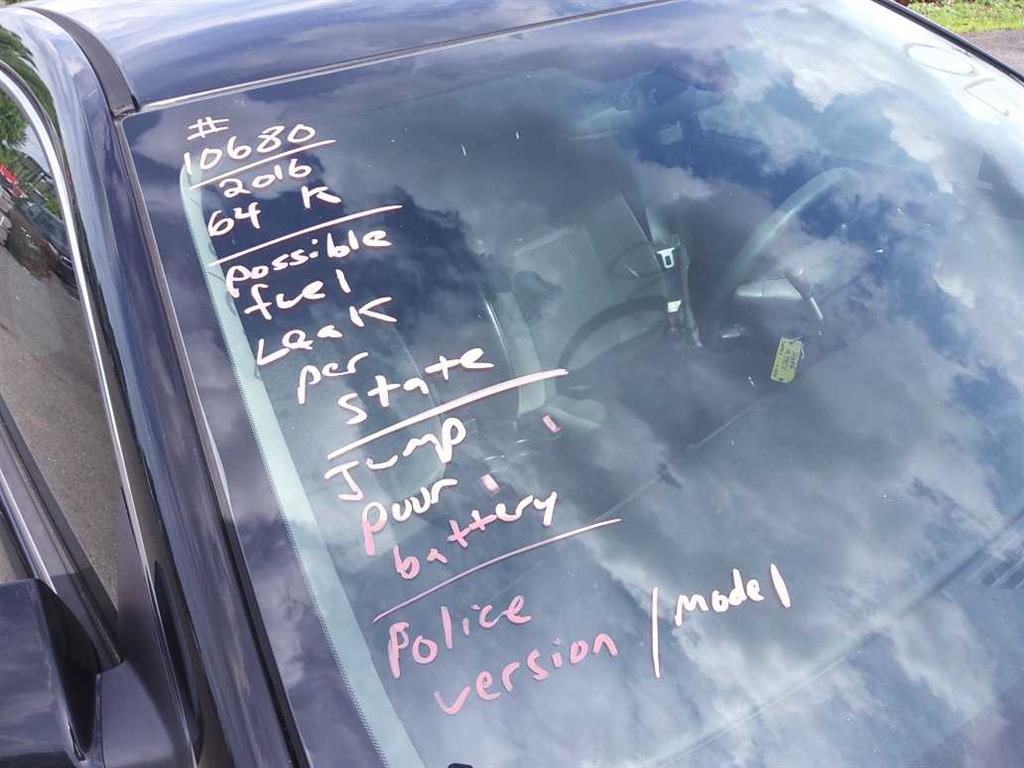 #
10680
2016
64 K
possible
fuel
Leak
per
state
Jump
poor
battery
Police
version / model